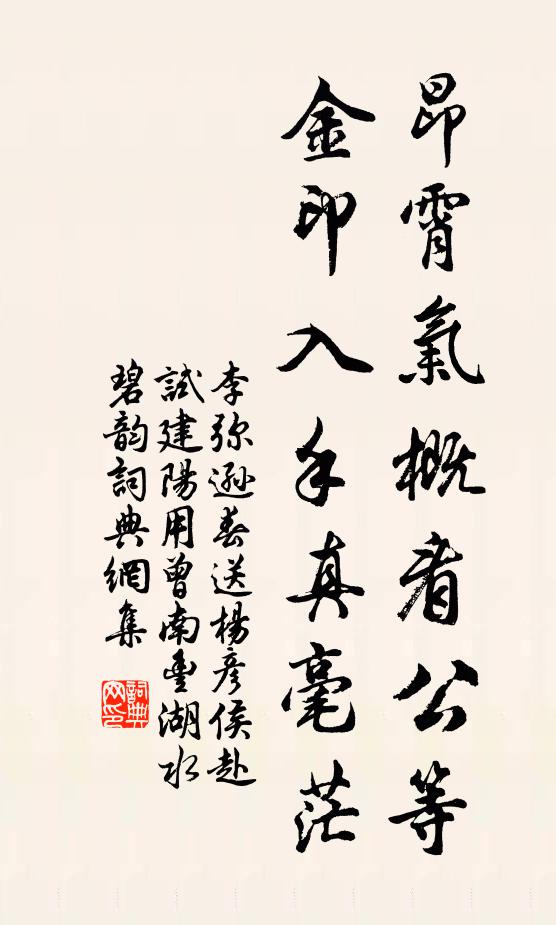 昂霄氣概看公等
金印入手真毫茫
李弥遜春送楊彥侯赴
試建陽用曾南豐湖水
碧韵詞典網集
詞典
网印